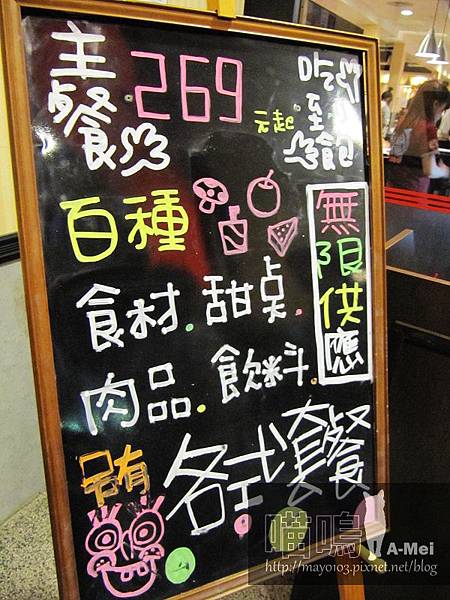 主餐269元起
吃至飽
百種
食材.甜桌
肉品.飲料.
無限供應
另有
各式套餐
喵嗚
A-Mei
http://mayo103.pixnet.net/blog